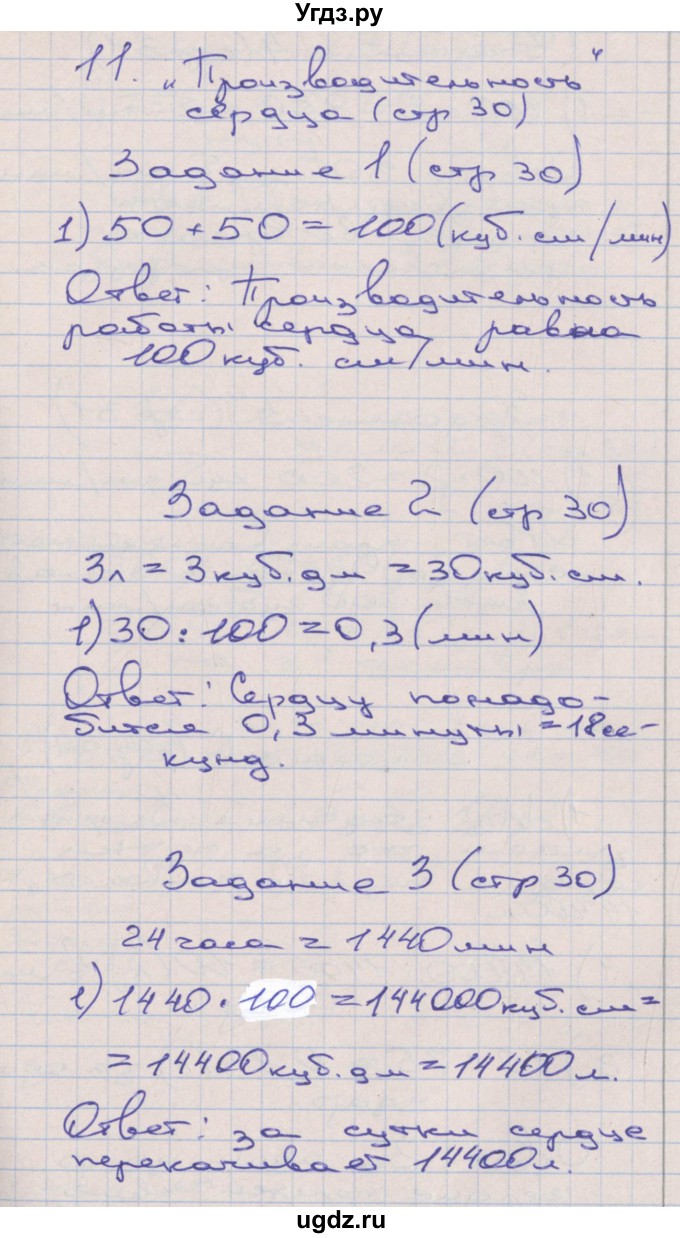 Угдз.ру
11. „Производительность"
сердца (стр 30)
Задание 1 (стр 30)
1) 50 + 50 = 100 (куб. см/мин)
Ответ: Производительность
работы сердца равна
100 куб. см/мин.
Задание 2 (стр 30)
3л = 3 куб. дм = 30 куб. см.
1) 30 : 100 = 0,3 (мин)
Ответ: Сердцу понадо-
бится 0,3 минуты = 18 се-
кунд.
Задание 3 (стр 30)
24 часа = 1440 мин
1) 1440 · 100 = 144000 куб. см =
= 14400 куб. дм = 14400 л.
Ответ: за сутки сердце
перекачивает 14400л.
ugdz.ru